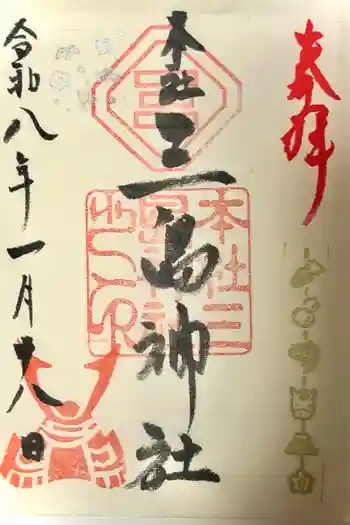 奉拝
本社
三島神社
本社三
令和八年一月十八日